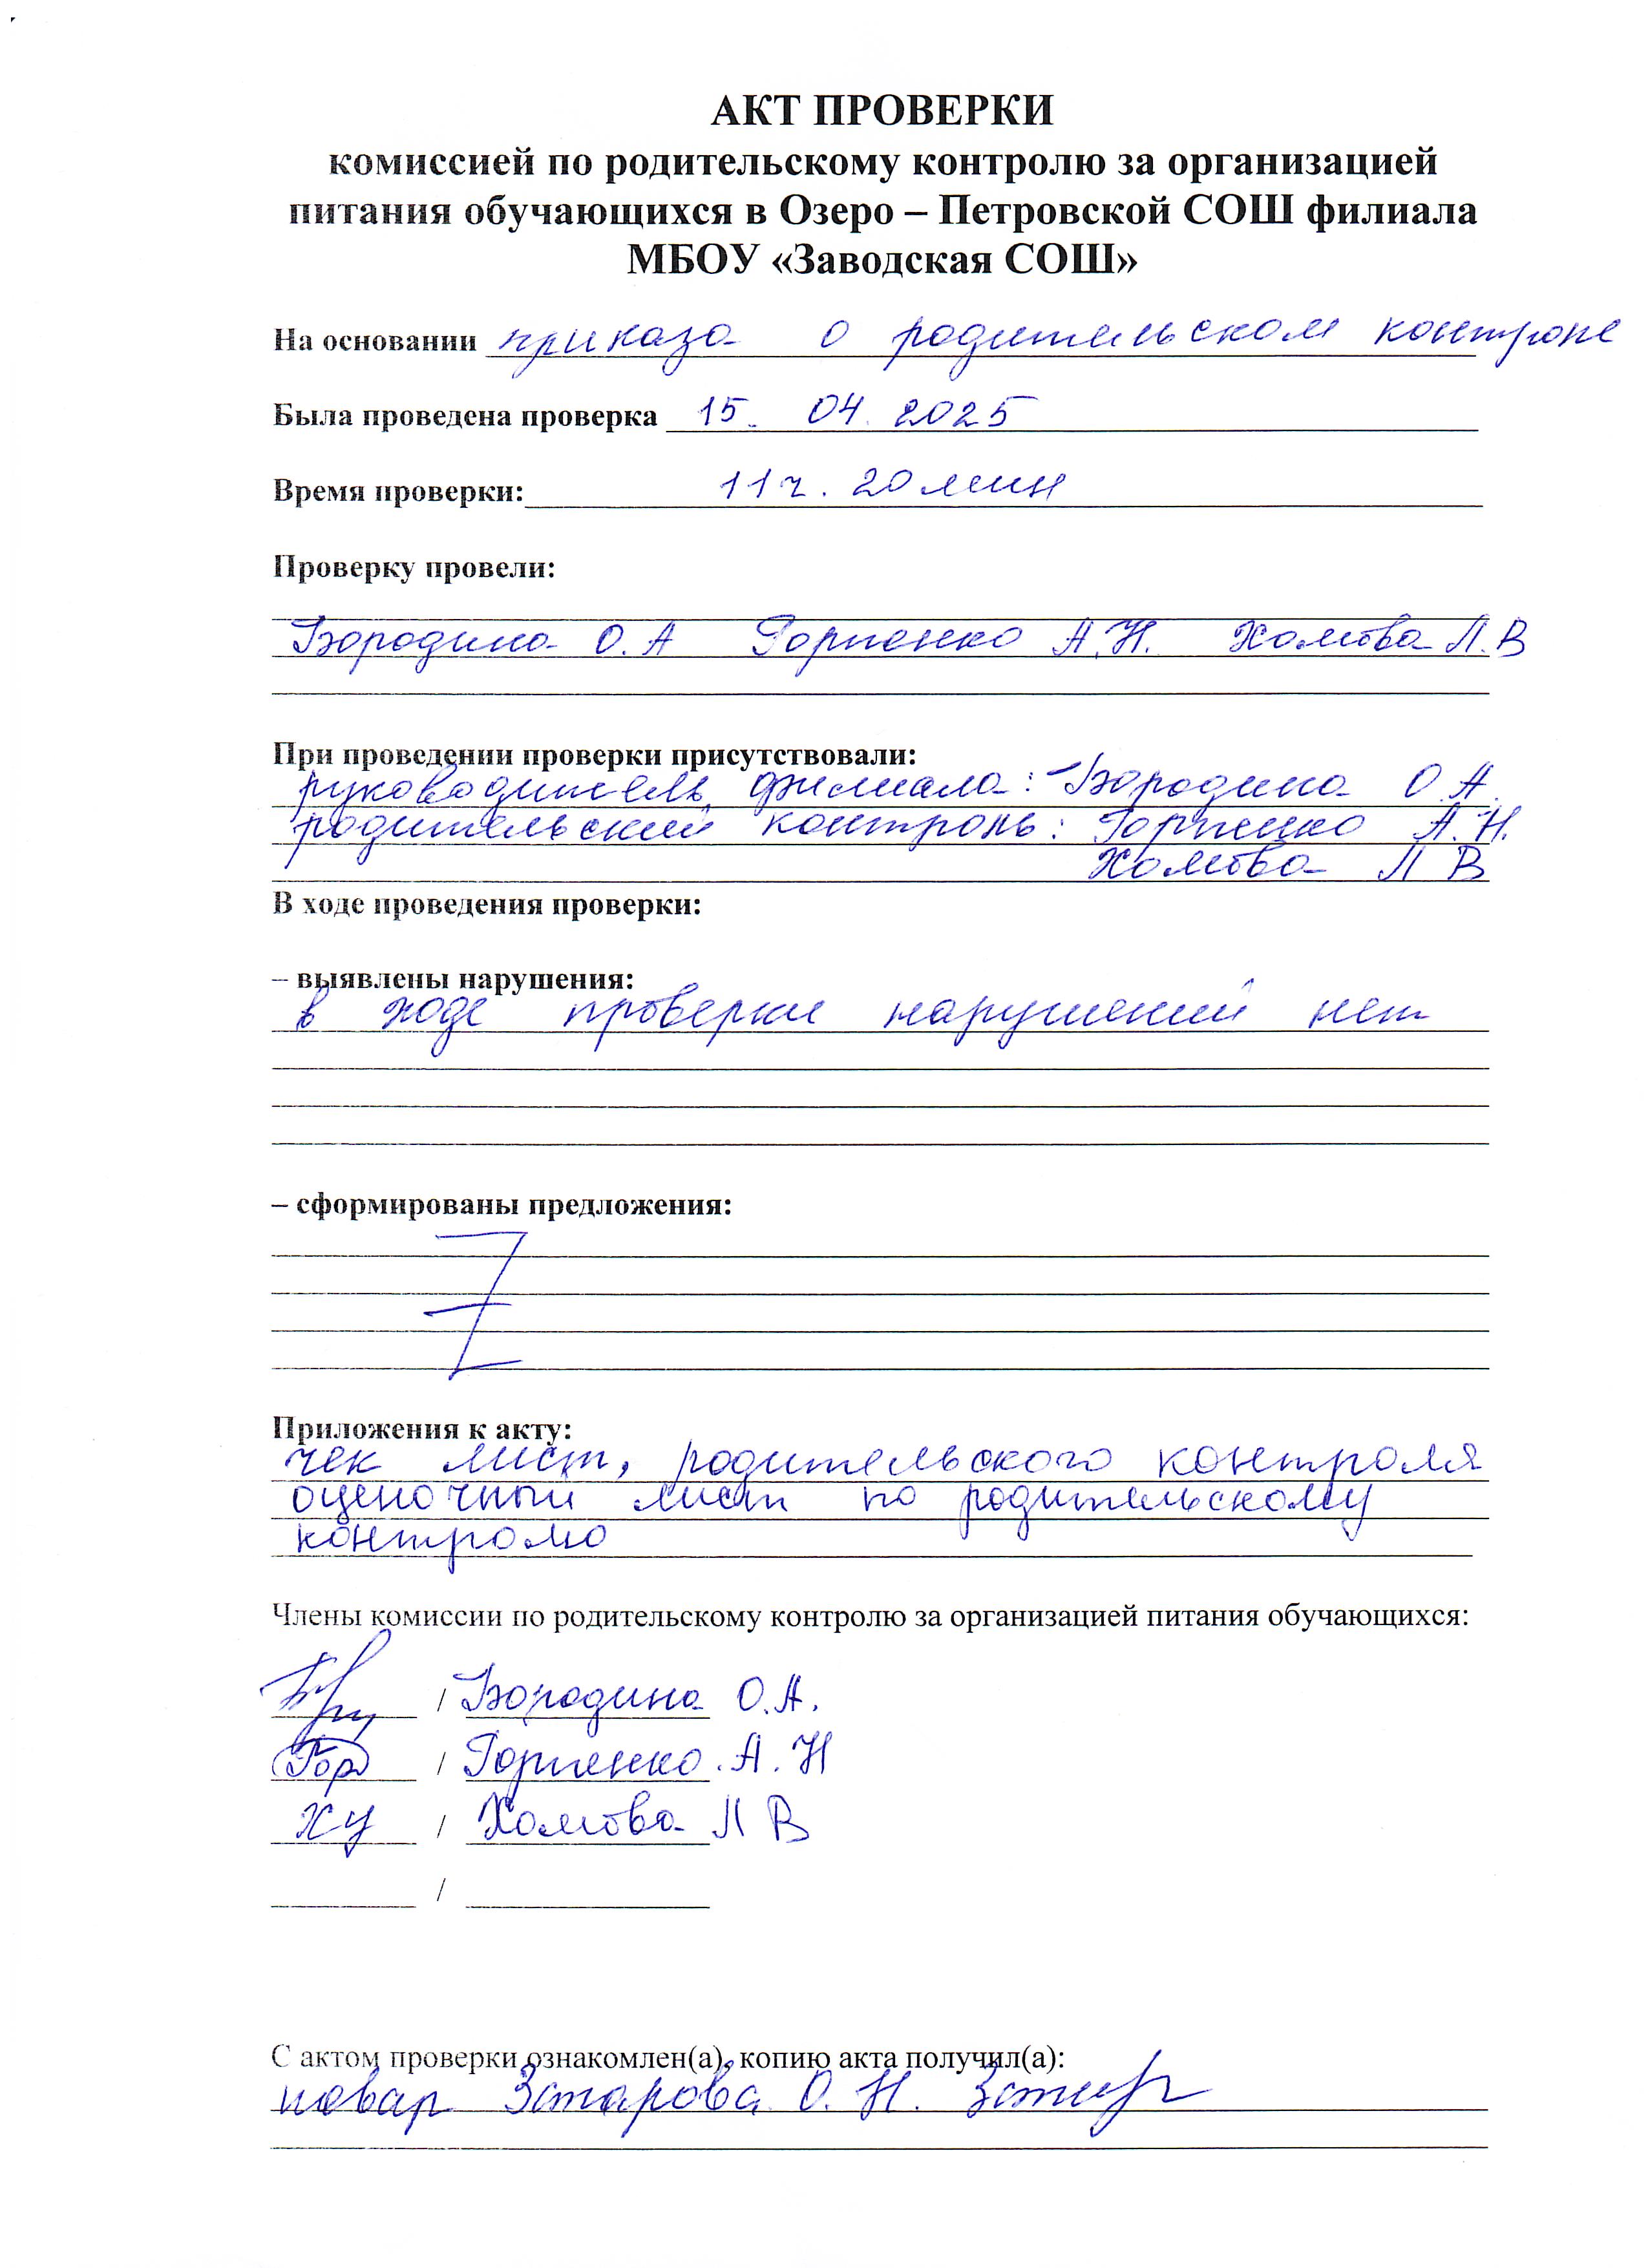 АКТ ПРОВЕРКИ
комиссией по родительскому контролю за организацией
питания обучающихся в Озеро – Петровской СОШ филиала
МБОУ «Заводская СОШ»
На основании приказа о родительском контроле
Была проведена проверка 15. 04. 2025
Время проверки: 11 ч. 20 мин
Проверку провели:
Бородина О. А Горпенко А.Н. Хомова Л.В
При проведении проверки присутствовали:
руководитель филиала: Бородина О.А.
родительский контроль: Горпенко А.Н.
Л В
В ходе проведения проверки:
– выявлены нарушения:
в ходе проверки нарушений нет
– сформированы предложения:
Z
Приложения к акту:
чек лист, родительского контроля
оценочный лист по родительскому
контролю
Члены комиссии по родительскому контролю за организацией питания обучающихся:
/ Бородина О.А.
Гор / Горпенко. А. Н
/ Л В
/
С актом проверки ознакомлен(а), копию акта получил(а):
повар О. Н.